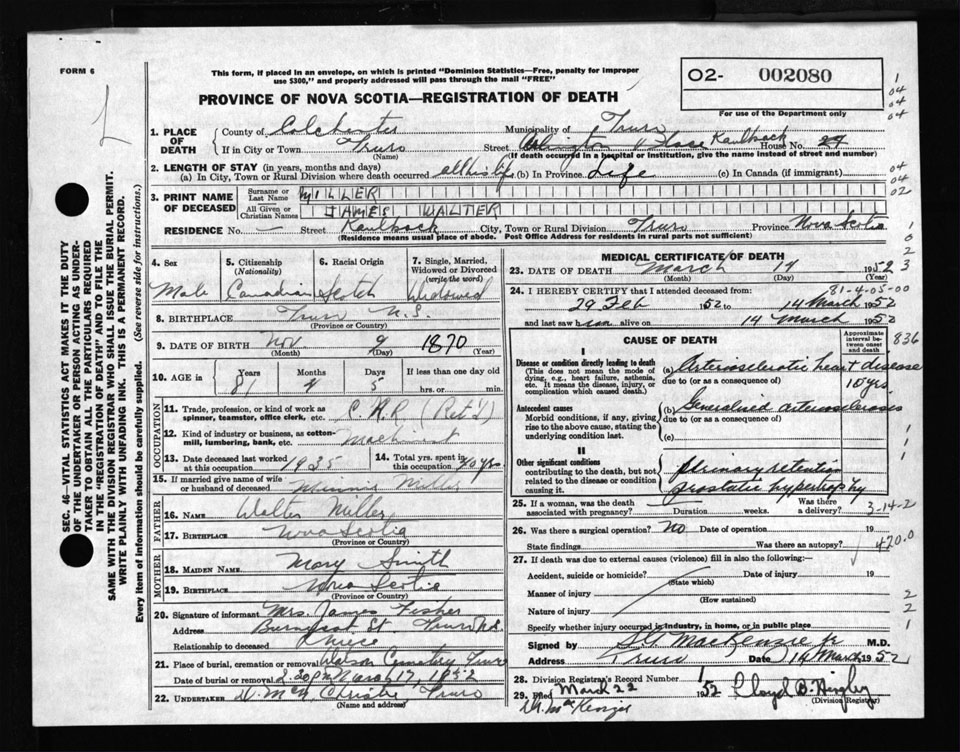 FORM 6
This form, if placed in an envelope, on which is printed "Dominion Statistics—Free, penalty for improper
use $300," and properly addressed will pass through the mail "FREE"
PROVINCE OF NOVA SCOTIA—REGISTRATION OF DEATH
02- 002080
For use of the Department only
1. PLACE OF DEATH
County of Colchester Municipality of Truro
If in City or Town Truro Street Arlington Place Kaulback House No. 27
(Name) (If death occurred in a hospital or institution, give the name instead of street and number)
2. LENGTH OF STAY (in years, months and days)
(a) In City, Town or Rural Division where death occurred all his life (b) In Province Life (c) In Canada (if immigrant)
3. PRINT NAME OF DECEASED
Surname or Last Name MILLER
All Given or Christian Names JAMES WALTER
RESIDENCE No. — Street Kaulback City, Town or Rural Division Truro Province Nova Scotia
(Residence means usual place of abode. Post Office Address for residents in rural parts not sufficient)
4. Sex Male
5. Citizenship (Nationality) Canadian
6. Racial Origin Scotch
7. Single, Married, Widowed or Divorced (write the word) Widowed
8. BIRTHPLACE Truro N.S.
(Province or Country)
9. DATE OF BIRTH Nov 9 1870
(Month) (Day) (Year)
10. AGE in Years 81 Months 4 Days 5 If less than one day old
hrs. or min.
OCCUPATION
11. Trade, profession, or kind of work as spinner, teamster, office clerk, etc. C.N.R (Ret'd)
12. Kind of industry or business, as cotton-mill, lumbering, bank, etc. Machinist
13. Date deceased last worked at this occupation 1935
14. Total yrs. spent in this occupation 40 yrs
15. If married give name of wife or husband of deceased Minnie Miller
FATHER
16. NAME Walter Miller
17. BIRTHPLACE Nova Scotia
(Province or Country)
MOTHER
18. MAIDEN NAME Mary Smith
19. BIRTHPLACE Nova Scotia
(Province or Country)
20. Signature of informant Mrs. James Fisher
Address St. Truro N.S.
Relationship to deceased
21. Place of burial, cremation or removal Cemetery Truro
Date of burial or removal 2.30 pm March 17, 1952
22. UNDERTAKER Christie Truro
(Name and address)
MEDICAL CERTIFICATE OF DEATH
23. DATE OF DEATH March 14 1952
(Month) (Day) (Year)
81-4-05-00
24. I HEREBY CERTIFY that I attended deceased from:
29 Feb 52 to 14 March 1952
and last saw him alive on 14 March 1952
CAUSE OF DEATH
Approximate interval between onset and death
836
I
Disease or condition directly leading to death
(This does not mean the mode of dying, e.g., heart failure, asthenia, etc. It means the disease, injury, or complication which caused death.)
(a) Arteriosclerotic heart disease
due to (or as a consequence of) 10 yrs
Antecedent causes
Morbid conditions, if any, giving rise to the above cause, stating the underlying condition last.
(b) Generalised arteriosclerosis
due to (or as a consequence of)
(c)
II
Other significant conditions
contributing to the death, but not related to the disease or condition causing it.
Urinary retention
prostatic hypertrophy
25. If a woman, was the death associated with pregnancy? Duration weeks. Was there a delivery? 3-14-2
26. Was there a surgical operation? No Date of operation 19
State findings Was there an autopsy? 420.0
27. If death was due to external causes (violence) fill in also the following:
Accident, suicide or homicide? Date of injury 19
(State which)
Manner of injury
(How sustained)
Nature of injury
Specify whether injury occurred in industry, in home, or in public place
Signed by S G MacKenzie jr M.D.
Address Truro Date 14 March 1952
28. Division Registrar's Record Number
29. Filed March 22 1952 Lloyd B.
(Division Registrar)
SEC. 46—VITAL STATISTICS ACT MAKES IT THE DUTY
OF THE UNDERTAKER OR PERSON ACTING AS UNDER-
TAKER TO OBTAIN ALL THE PARTICULARS REQUIRED
IN THE "REGISTRATION OF DEATH" AND TO FILE THE
SAME WITH THE DIVISION REGISTRAR WHO SHALL ISSUE THE BURIAL PERMIT.
WRITE PLAINLY WITH UNFADING INK. THIS IS A PERMANENT RECORD.
Every item of information should be carefully supplied. (See reverse side for instructions.)